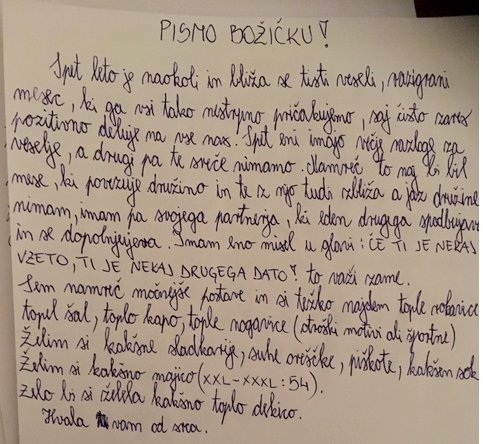 PISMO BOŽIČKU!
Spet leto je naokoli in bliža se tisti veseli, razigrani
mesec, ki ga vsi tako nestrpno pričakujemo, saj čisto zares
pozitivno deluje na vse nas. Spet eni imajo večje razloge za
veselje, a drugi pa te sreče nimamo. Namreč to naj bi bil
mese, ki povezuje družino in te z njo tudi zbliža a jaz družine
nimam, imam pa svojega partnerja, ki eden drugega spodbujava
in se dopolnjujeva. Imam eno misel v glavi: ČE TI JE NEKAJ
VZETO, TI JE NEKAJ DRUGEGA DATO! to važi zame.
Sem namreč močnejše postave in si težko najdem tople rokavice
topel šal, toplo kapo, tople nogavice (otroški motivi ali športne)
Želim si kakšne sladkarije, suhe oreščke, piškote, kakšen sok
Želim si kakšno majico (XXL-XXXL:54).
Zelo bi si želela kakšno toplo dekico.
Hvala vam od srca.